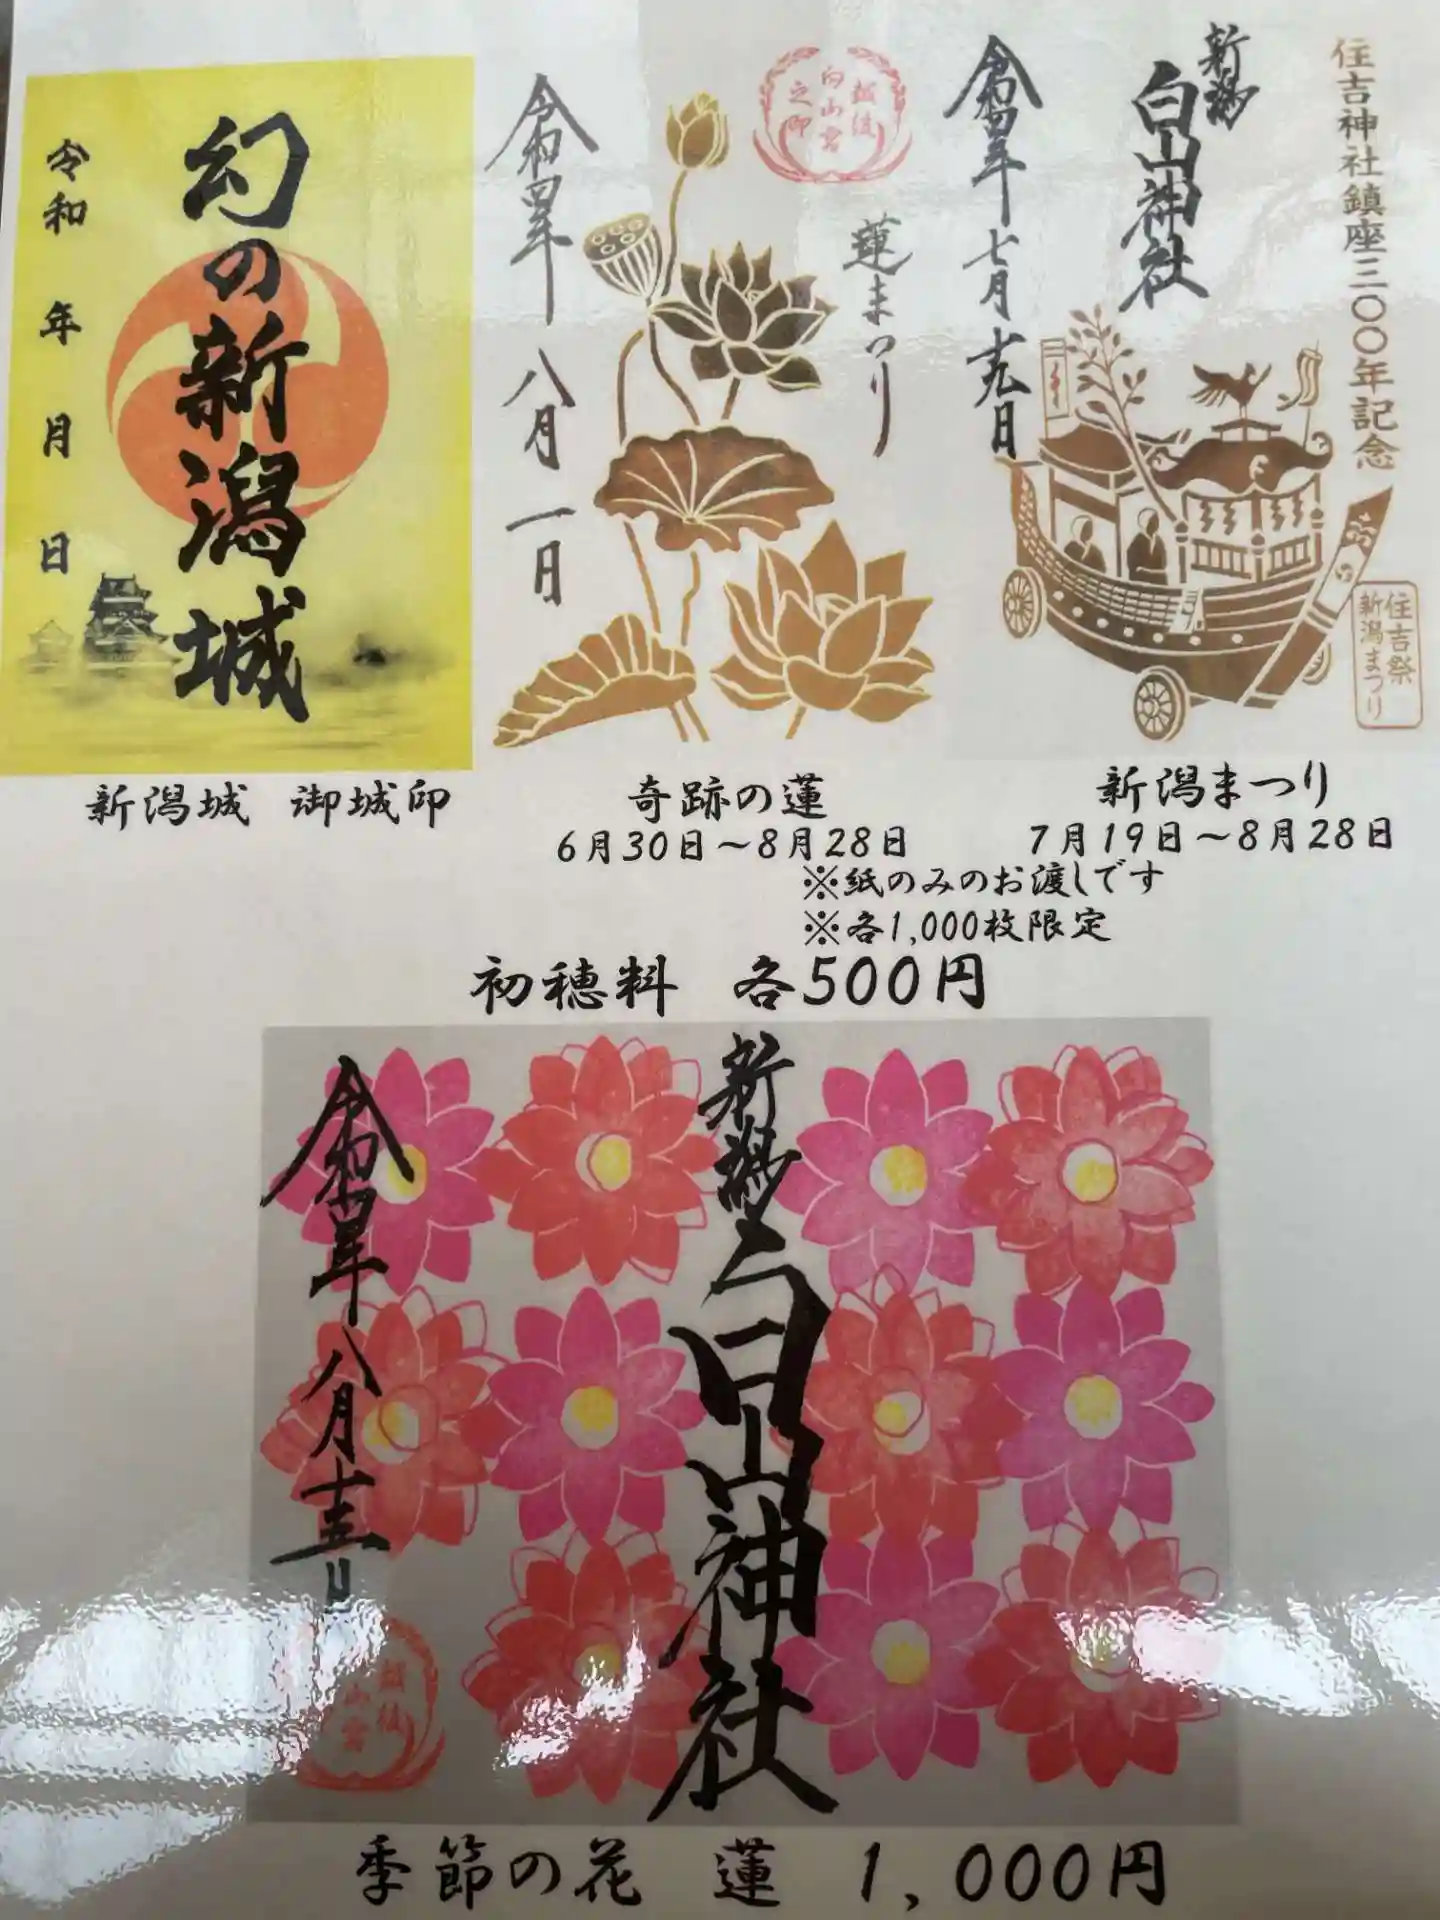 幻の新潟城
令和 年 月 日
新潟城 御城印
越後
白山宮
之印
蓮まつり
令和四年 八月 一日
奇跡の蓮
6月30日～8月28日
住吉神社鎮座三〇〇年記念
新潟
白山神社
令和四年 七月 十九日
住吉祭
新潟まつり
新潟まつり
7月19日～8月28日
※紙のみのお渡しです
※各1,000枚限定
初穂料 各500円
新潟
白山神社
令和四年 八月 十五日
越後
山宮
季節の花 蓮 1,000円